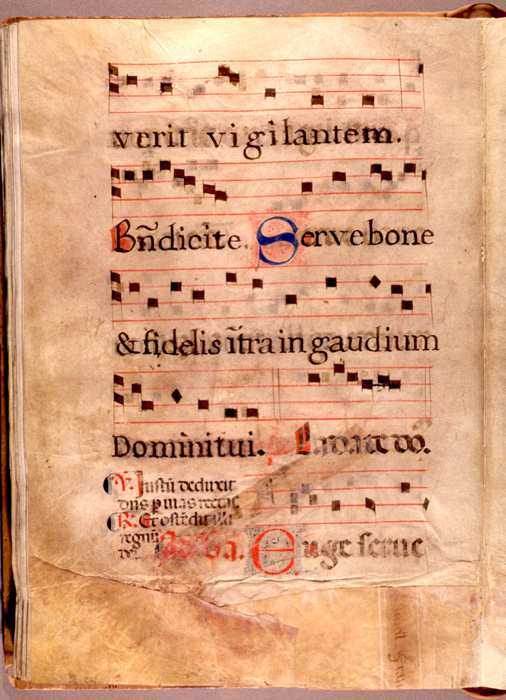 verit vigilantem.
Bn̄dicite. Serve bone
& fidelis ītra in gaudium
Domini tui.
℣. Justū deduxit
dn̄s ꝑ vias rectas
℟. Et ostēdit illi
regnū
Euge serue